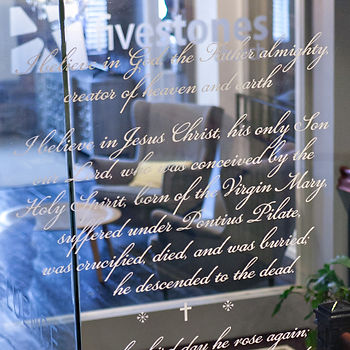 livestones
I believe in God, the Father almighty,
creator of heaven and earth
I believe in Jesus Christ, his only Son
our Lord, who was conceived by the
Holy Spirit, born of the Virgin Mary,
suffered under Pontius Pilate,
was crucified, died, and was buried;
he descended to the dead.
third day he rose again;